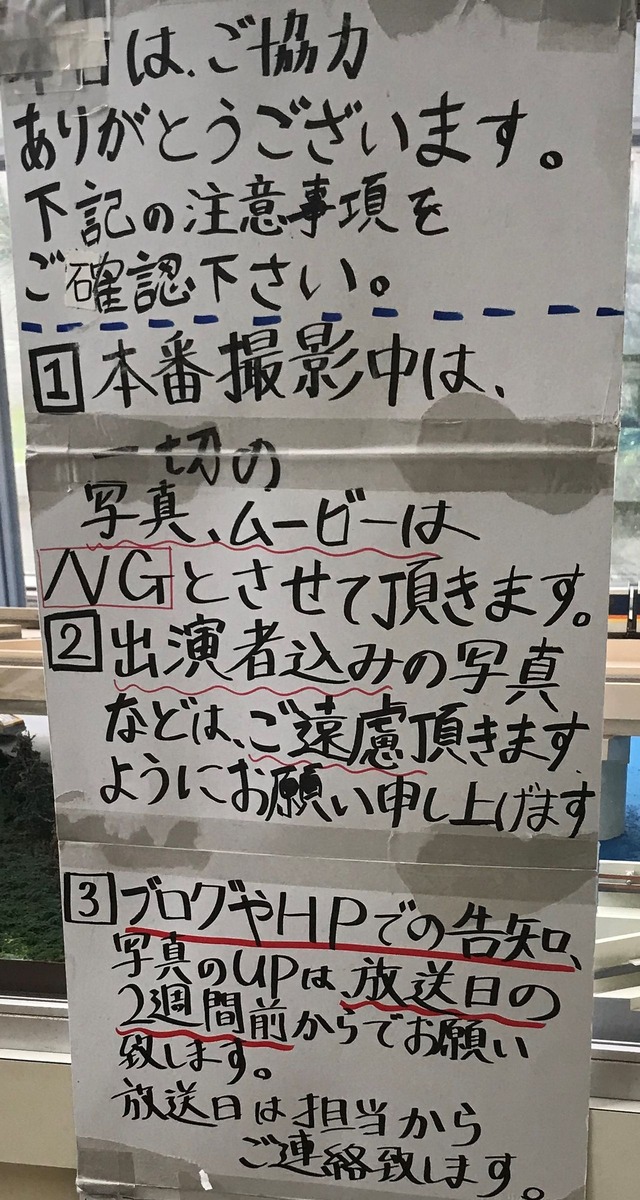 は、ご協力
ありがとうございます。
下記の注意事項を
ご確認下さい。
1 本番撮影中は、
一切の
写真、ムービーは
NGとさせて頂きます。
2 出演者込みの写真
などは、ご遠慮頂きます
ようにお願い申し上げます
3 ブログやHPでの告知、
写真のUPは、放送日の
2週間前からでお願い
致します。
放送日は担当から
ご連絡致します。